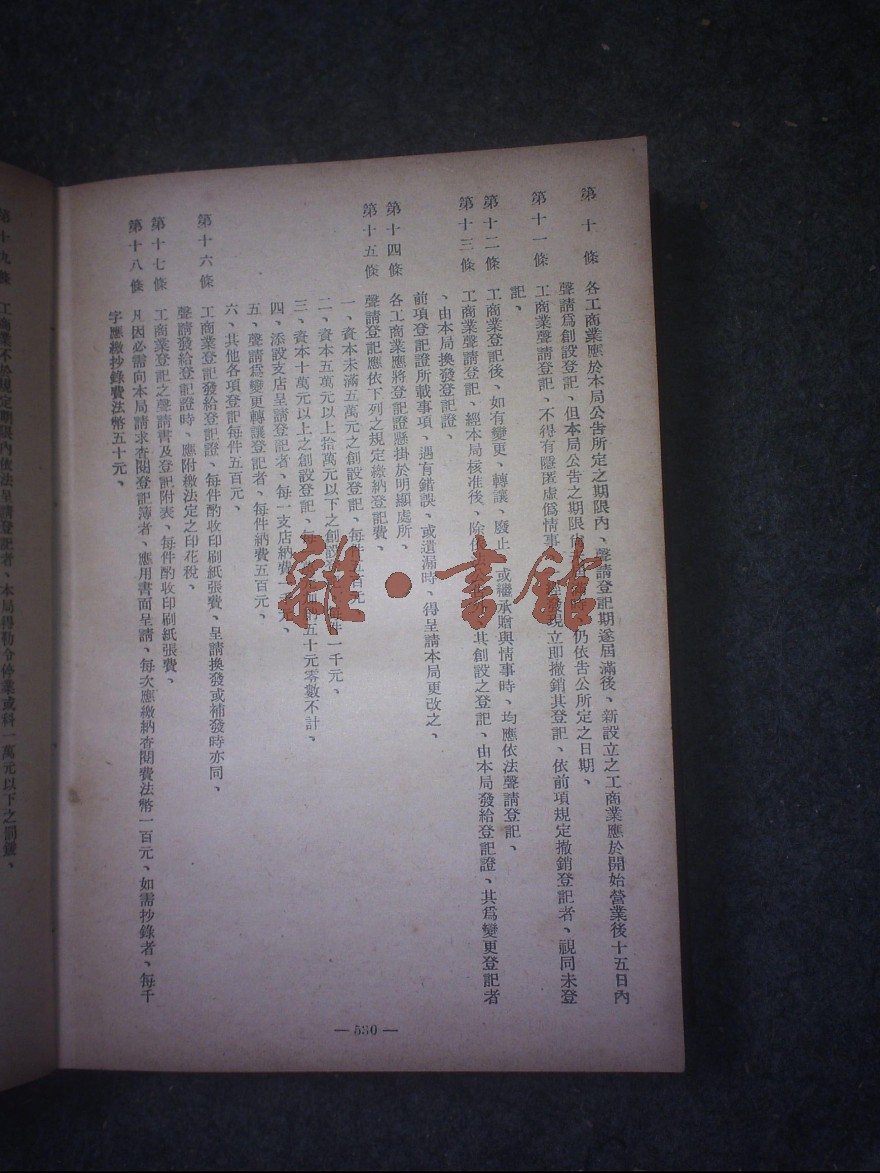 第十條　各工商業應於本局公告所定之期限內、聲請登記期遂屆滿後、新設立之工商業應於開始營業後十五日內
聲請爲創設登記、但本局公告之期限尙未屆滿時、仍依告公所定之日期、
第十一條　工商業聲請登記、不得有隱匿虛僞情事、發現立即撤銷其登記、依前項規定撤銷登記者、視同未登
記、
第十二條　工商業登記後、如有變更、轉讓、廢止、或繼承贈與情事時、均應依法聲請登記、
第十三條　工商業聲請登記、經本局核准後、除其創設之登記、由本局發給登記證、其爲變更登記者
、由本局換發登記證、
前項登記證所載事項、遇有錯誤、或遺漏時、得呈請本局更改之、
第十四條　各工商業應將登記證懸掛於明顯處所、
第十五條　聲請登記應依下列之規定繳納登記費、
一、資本未滿五萬元之創設登記、每件百元、
二、資本五萬元以上拾萬元以下之創設件一千元、
三、資本十萬元以上之創設登記、每五十元零數不計、
四、添設支店呈請登記者、每一支店納費一千元、
五、聲請爲變更轉讓登記者、每件納費五百元、
六、其他各項登記每件五百元、
第十六條　工商業登記發給登記證、每件酌收印刷紙張費、呈請換發或補發時亦同、
聲請發給登記證時、應附繳法定之印花稅、
第十七條　工商業登記之聲請書及登記附表、每件酌收印刷紙張費、
第十八條　凡因必需向本局請求查閱登記簿者、應用書面呈請、每次應繳納查閱費法幣一百元、如需抄錄者、每千
字應繳抄錄費法幣五十元、
第十九條　工商業不於規定期限內依法呈請登記者、本局得勒令停業或科一萬元以下之罰鍰、
— 530 —
雜·書館